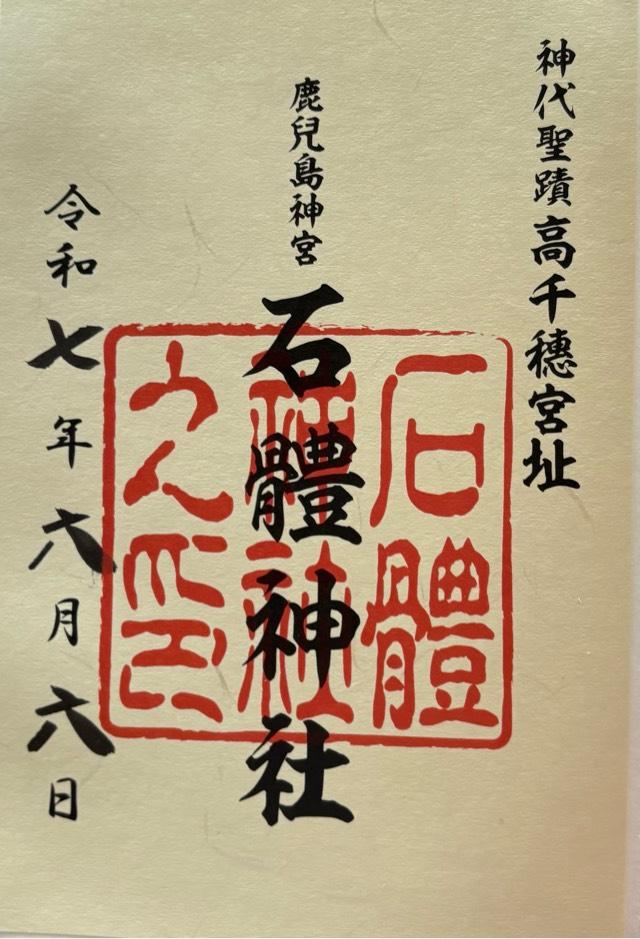 神代聖蹟高千穂宮址
鹿兒島神宮
石體神社
令和七年六月六日
石體
神社
之印